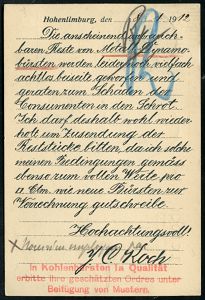 Hohenlimburg, den 9/1 1912
Die anscheinend unbrauch-
baren Reste von Metall-Dynamo-
bürsten werden leider noch vielfach
achtlos beiseite geworfen und
geraten zum Schaden des
Consumenten in den Schrot.
Ich darf deshalb wohl wieder-
holt um Zusendung der
Reststücke bitten, da ich solche
meinen Bedingungen gemäss
ebenso zum vollen Werte pro
Ctm. wie neue Bürsten zur
Verrechnung gutschreibe.
Hochachtungsvoll!
J. C. Koch
In Kohlenbürsten Ia Qualität
erbitte ihre geschätzten Ordres unter
Beifügung von Mustern.